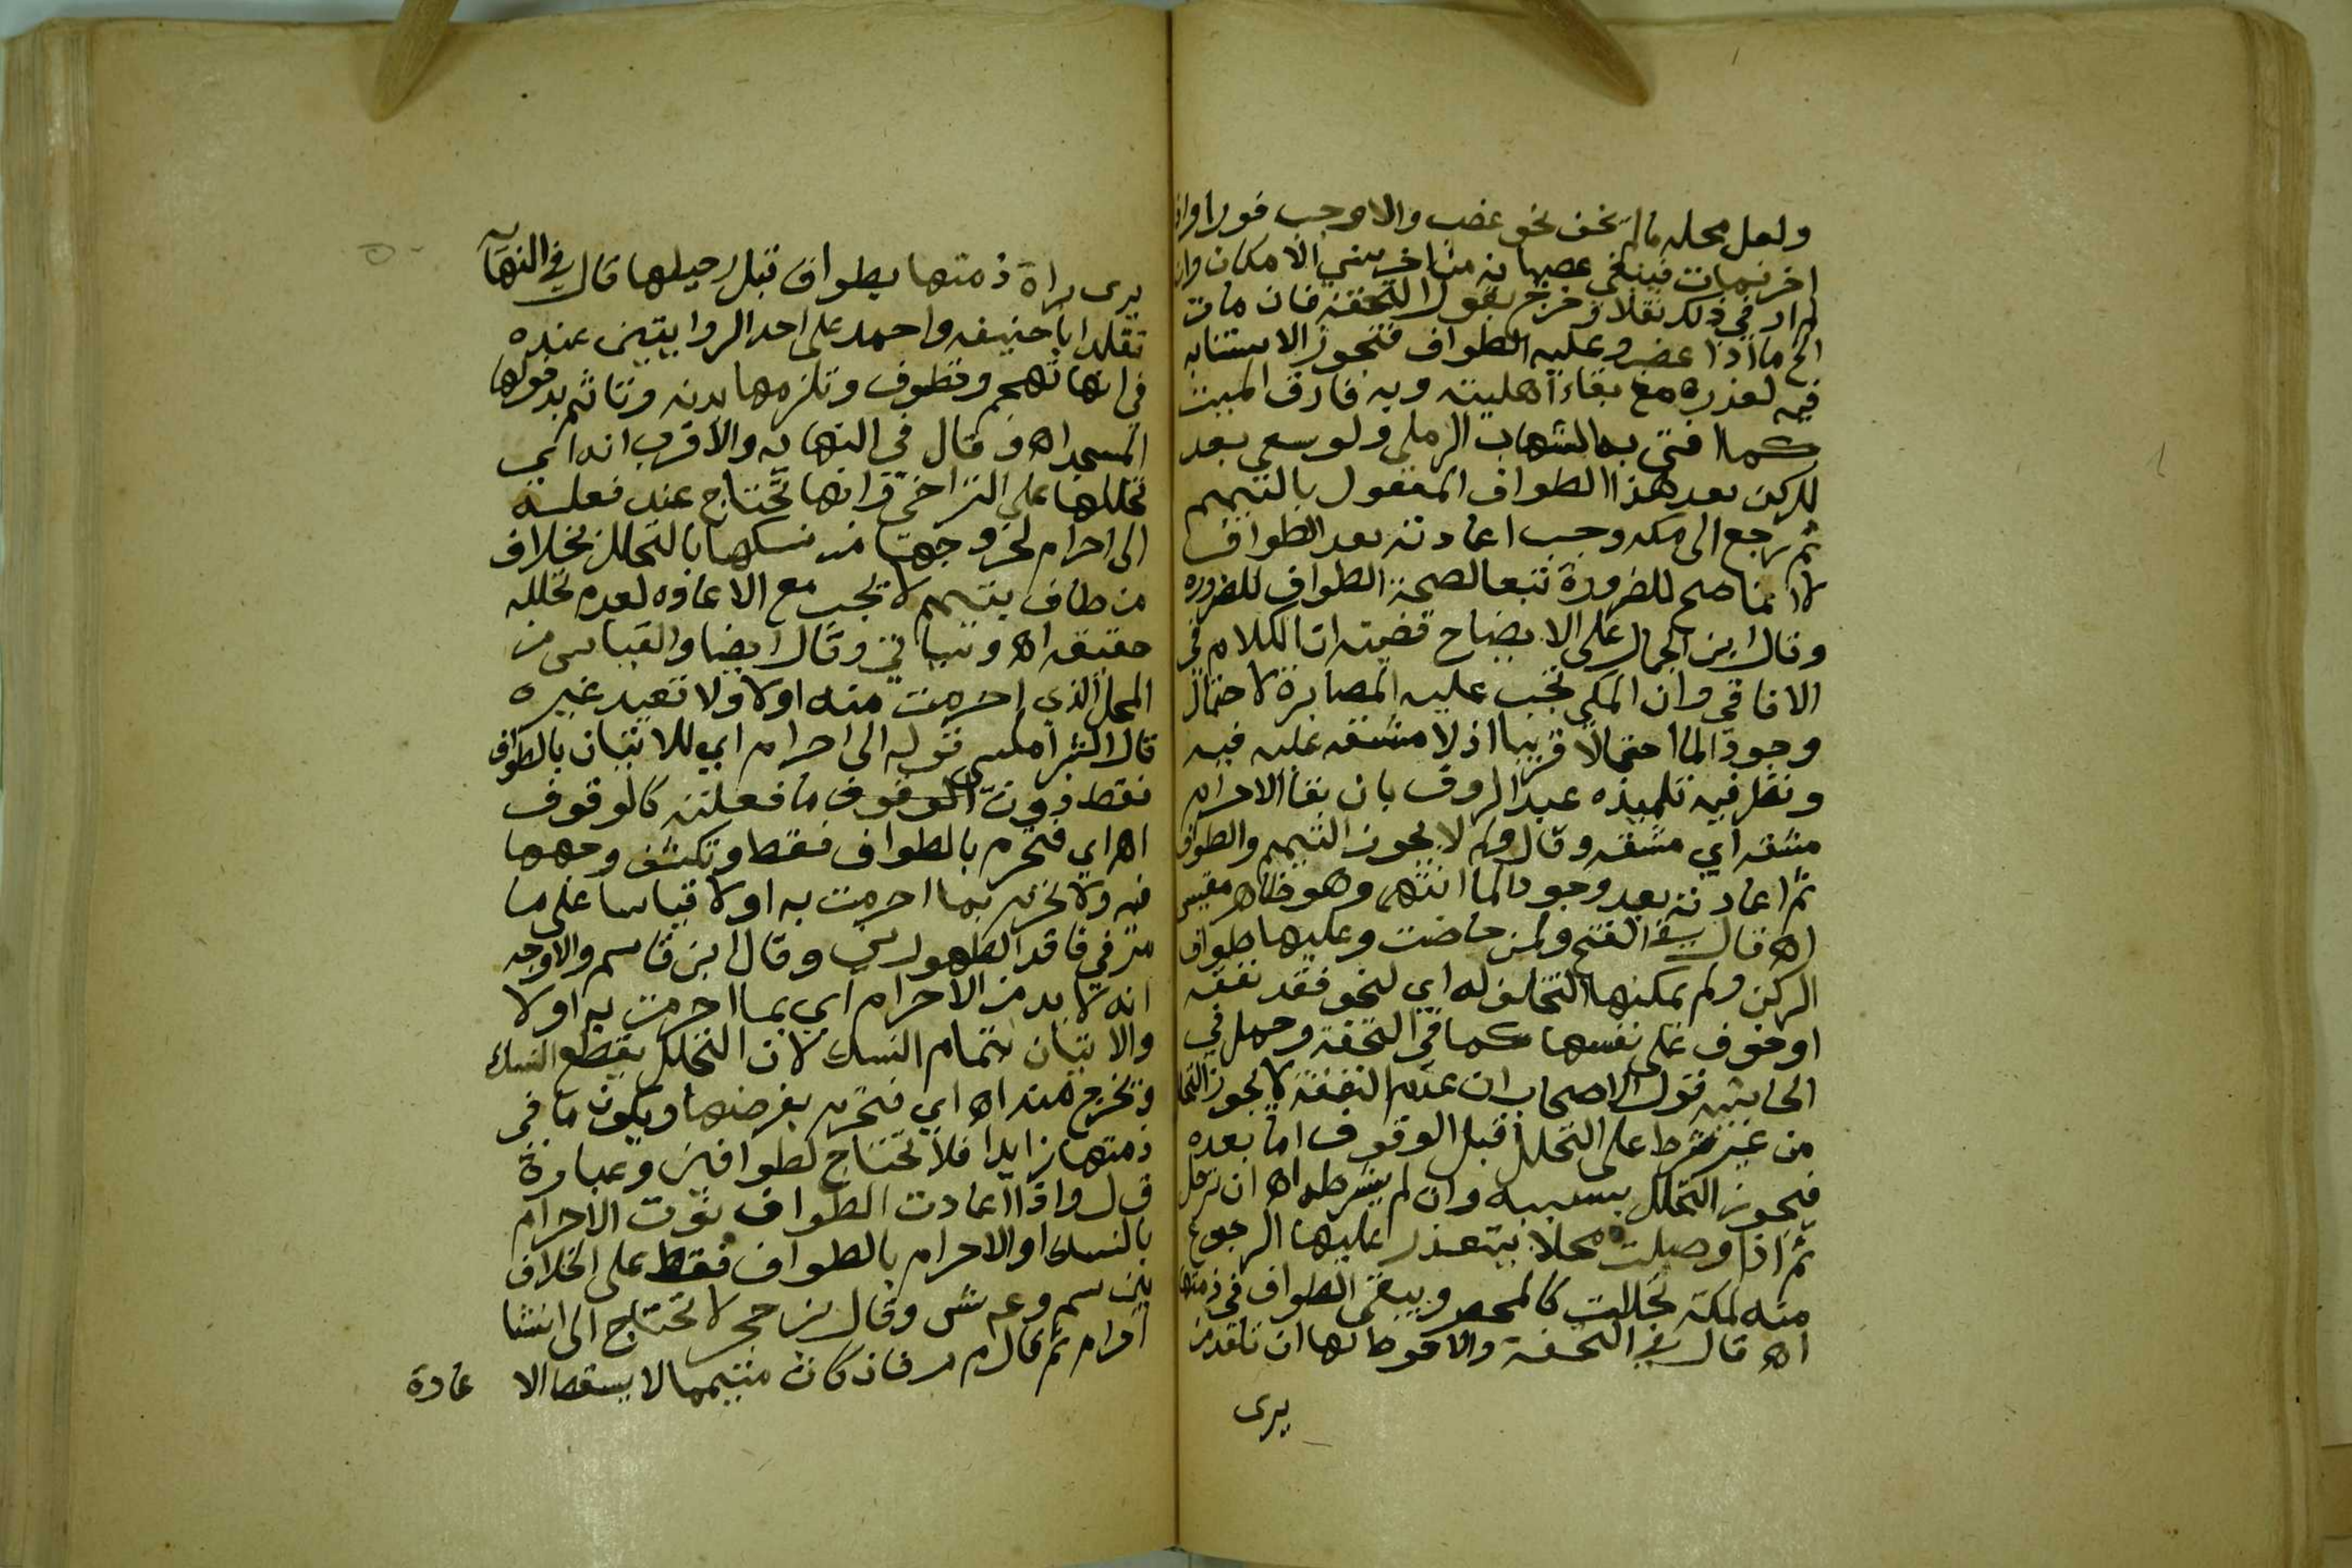 ولعل محله ما لم يخف نحو عضب والا وجب فورا وان
اخر فمات فينبغي عصيانه من اخر سني الامكان وان
لم ار في ذلك نقلا وخرج بقول التحفة فان مات
الخ ما اذا عضب وعليه الطواف فتجوز الاستنابه
فيه لعذره مع بقاء اهليته وبه فارق الميت
كما افتى به الشهاب الرملي ولو سعى بعد
للركن بعد هذا الطواف المفعول بالتيمم
ثم رجع الى مكه وجب اعادته بعد الطواف
لانه انما صح للضرورة تبعا لصحة الطواف للضروره
وقال ابن الجمال على الايضاح قضيته ان الكلام في
الافاقي وان المكي تجب عليه المصابرة لاحتمال
وجود الما احتمالا قريبا اذ لا مشقه عليه فيه
ونظر فيه تلميذه عبد الروف بان بقا الاحرام
مشقه اي مشقه وقال لا يجوز التيمم والطواف
ثم اعادته بعد وجود الما انتهى وهو ظاهر مقيس
اه قال في الفتح ولمن حاضت وعليها طواف
الركن ولم يمكنها التخلف له اي لنحو فقد نفقه
او خوف على نفسها كما في التحفة وحمل في
الحاشيه قول الاصحاب ان عدم النفقة لا يجوز التحلل
من غير شرط على التحلل قبل الوقوف اما بعده
فيجوز التحلل بسببه وان لم يشرطه اه ان ترحل
ثم اذا وصلت محلا يتعذر عليها الرجوع
منه لمكة تحللت كالمحصر ويبقى الطواف في ذمتها
اه قال في التحفة والاحوط لها ان تقلد من
يرى
يرى براة ذمتها بطواف قبل رحيلها قال في النهايه
تقلد ابا حنيفه واحمد على احد الروايتين عنده
في انها تهجم وتطوف وتلزمها بدنه وتاثم بدخولها
المسجد اه وقال في النهايه والاقرب انه اي
تحللها على التراخي وانها تحتاج عند فعله
الى احرام لخروجها من نسكها بالتحلل بخلاف
من طاف بتيمم لا تجب مع الاعاده لعدم تحلله
حقيقه اه وسياتي وقال ايضا والقياس من
المحل الذي احرمت منه اولا ولا تعيد غيره
قال الشبراملسي قوله الى احرام اي للاتيان بالطواف
فقط دون الوقوف ما فعلته كالوقوف
اه اي فتحرم بالطواف فقط وتكشف وجهها
فيه ولا تحرم بما احرمت به اولا قياسا على ما
مر في فاقد الطهورين وقال ابن قاسم والاوجه
انه لا بد من الاحرام اي بما احرمت به اولا
والاتيان بتمام النسك لان التحلل يقطع النسك
وتخرج منه اه اي فتحرم بفرضها ويكون ما في
ذمتها زايدا فلا تحتاج لطوافين وعبارة
ق ل واذا اعادت الطواف نوت الاحرام
بالنسك او الاحرام بالطواف فقط على الخلاف
بين سم وع ش وقال بن حجر لا تحتاج الى انشا
احرام ثم قال م ر فان كان متيمما لا يسقط الا عادة